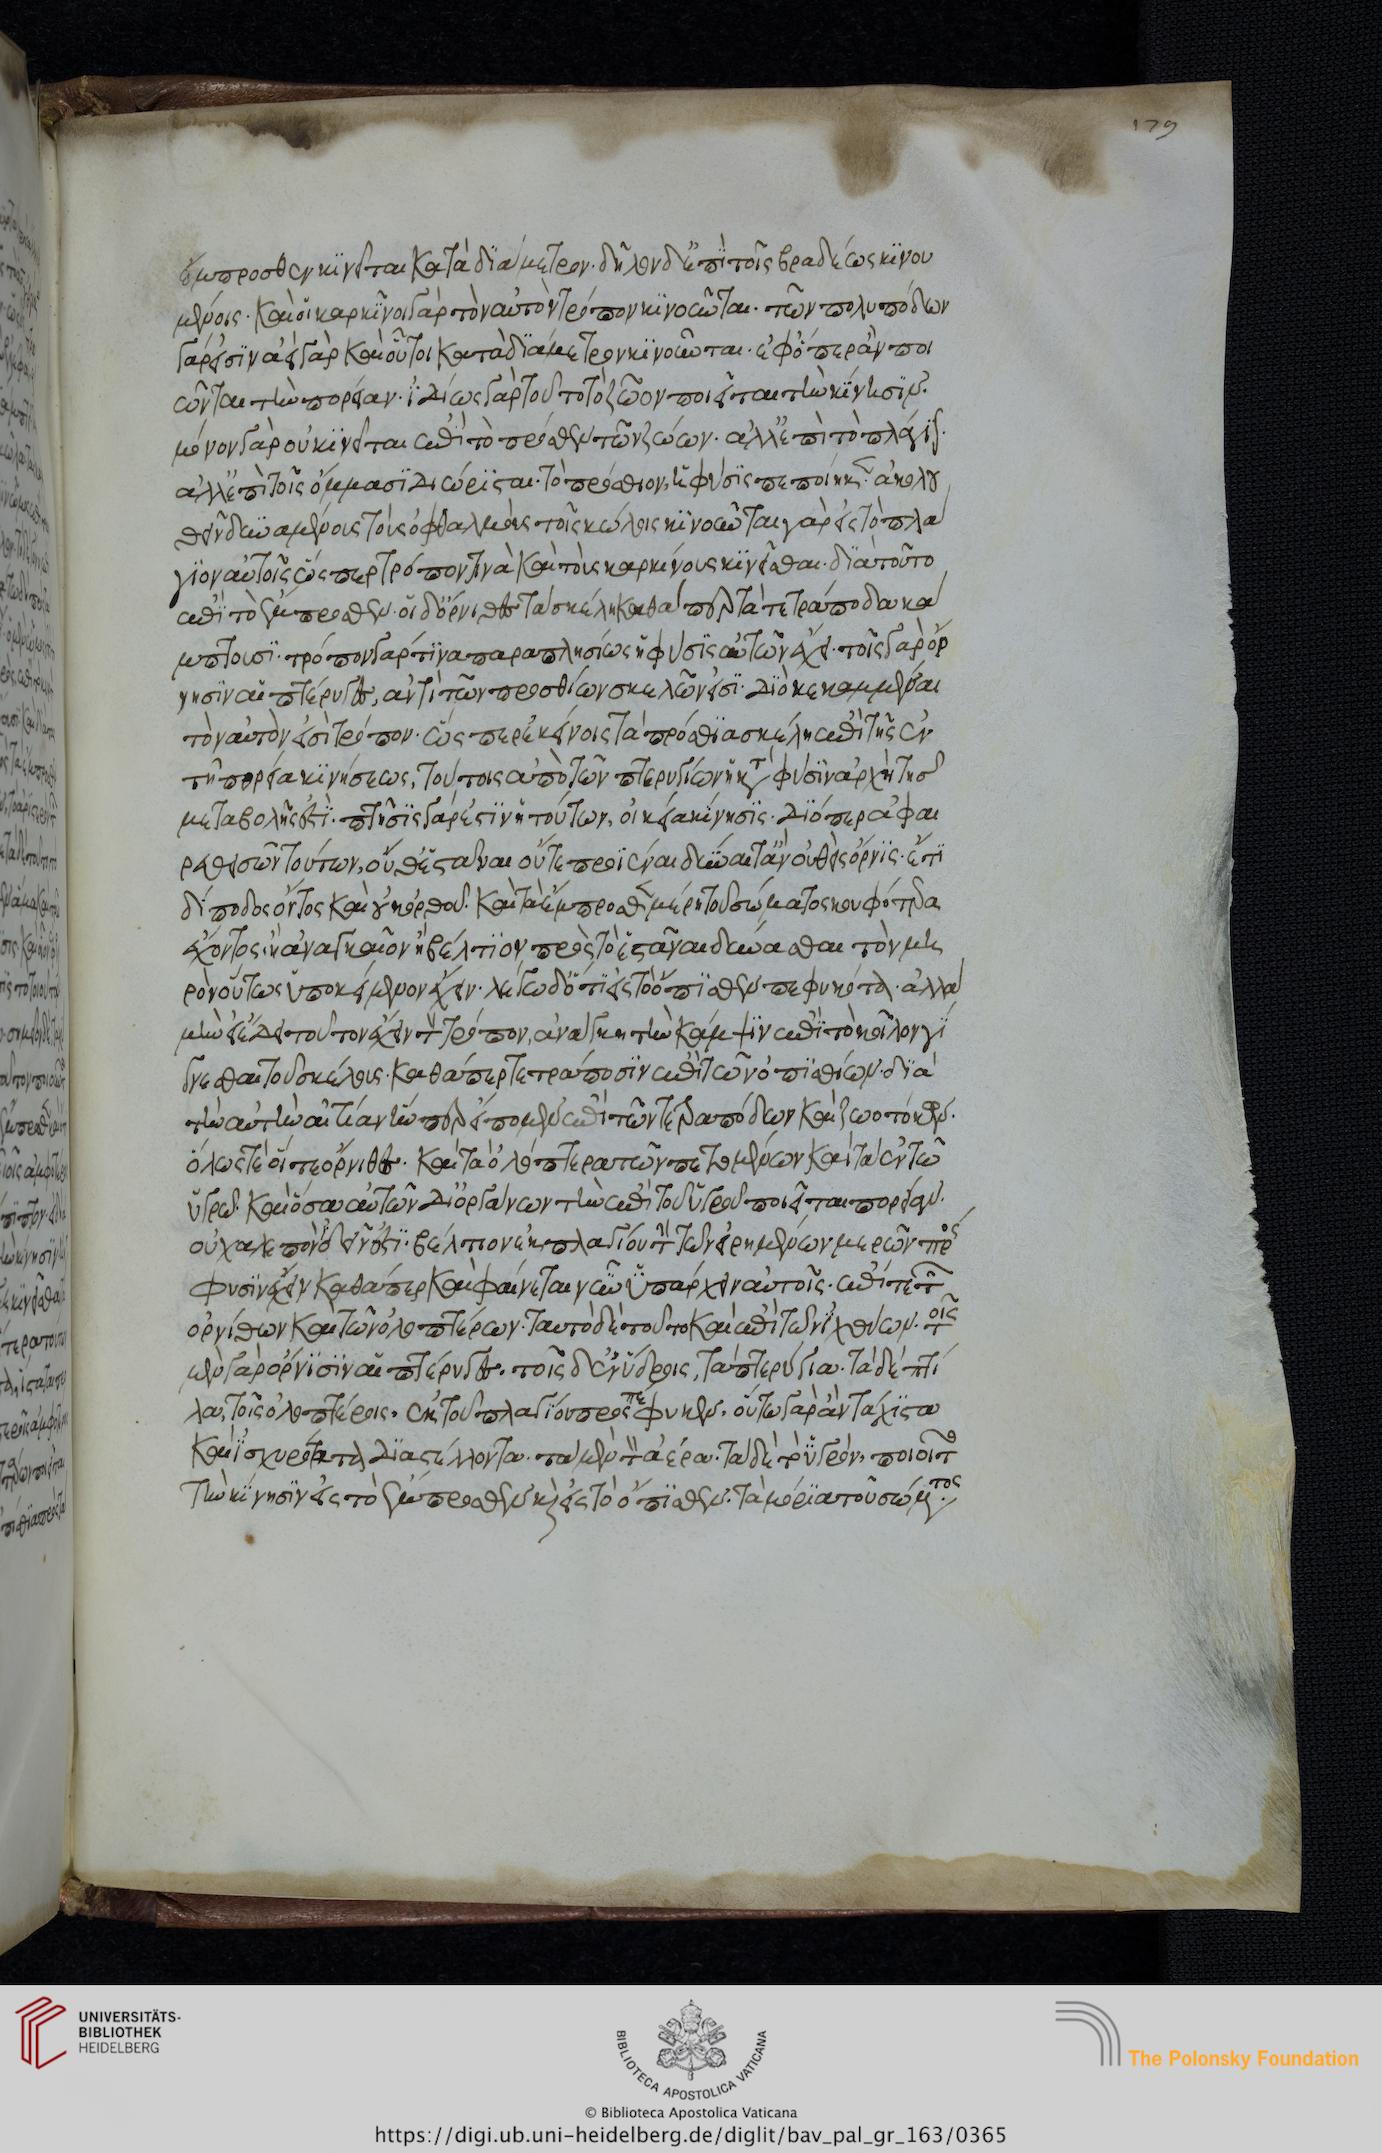 179
ἔμπροσθεν κινεῖται κατὰ διάμετρον· δῆλον δ' ἐπὶ τοῖς βραδέως κινου
μένοις· καὶ οἱ καρκίνοι γὰρ τὸν αὐτὸν τρόπον κινοῦνται· τῶν πολυπόδων
γάρ εἰσιν ἀεὶ γὰρ καὶ οὗτοι κατὰ διάμετρον κινοῦνται· ἐφ' ὅπερ ἂν ποι
ῶνται τὴν πορείαν· ἰδίως γὰρ τοῦτο τὸ ζῶον ποιεῖται τὴν κίνησιν·
μόνον γὰρ οὐ κινεῖται ἐπὶ τὸ πρόσθεν τῶν ζώων· ἀλλ' ἐπὶ τὸ πλάγιον·
ἀλλ' ἐπὶ τοῖς ὄμμασι διώρισται· τὸ πρόσθιον, ἡ φύσις πεποίηκεν· ἀκολου
θεῖν δυναμένους τοὺς ὀφθαλμοὺς τοῖς κώλοις κινοῦνται γὰρ εἰς τὸ πλά
γιον αὐτοῖς ὥσπερ τρόπον τινὰ καὶ τοὺς καρκίνους κινεῖσθαι· διὰ τοῦτο
ἐπὶ τὸ ἔμπροσθεν· οἱ δ' ὄρνιθες τὰ σκέλη καθάπερ τὰ τετράποδα κά
μπτουσι· τρόπον γάρ τινα παραπλησίως ἡ φύσις αὐτῶν ἔχει· τοῖς γὰρ ὄρ
νισιν αἱ πτέρυγες, ἀντὶ τῶν προσθίων σκελῶν εἰσι· διὸ κεκαμμέναι
τὸν αὐτὸν εἰσὶ τρόπον· ὥσπερ ἐκείνοις τὰ πρόσθια σκέλη ἐπὶ τῆς ἐν
τῇ πορεία κινήσεως, τούτοις ἀπὸ τῶν πτερυγίων ἡ κατὰ φύσιν ἀρχὴ τῆς
μεταβολῆς ἐστι· πτῆσις γάρ ἐστιν ἡ τούτων, οἰκεία κίνησις· διόπερ ἀφαι
ρεθεισῶν τούτων, οὔθ' ἑστάναι οὔτε προϊέναι δύναιτ' ἂν οὐθεὶς ὄρνις· ἔτι
δίποδος ὄντος καὶ οὐκ ὀρθοῦ· καὶ τὰ ἔμπροσθεν μέρη τοῦ σώματος κουφότερα
ἔχοντος· ἢ ἀναγκαῖον ἢ βέλτιον πρὸς τὸ ἑστάναι δύνασθαι τὸν μη
ρὸν οὕτως ὑποκείμενον ἔχειν· λέγω δ' ὅτι εἰς τὸ ὄπισθεν πεφυκότα· ἀλλὰ
μὴν εἰ ἔδει τοῦτον ἔχειν τὸν τρόπον, ἀνάγκη τὴν κάμψιν ἐπὶ τὸ κοῖλον γί
γνεσθαι τοῦ σκέλους· καθάπερ τετράποσιν ἐπὶ τῶν ὀπισθίων· διὰ
τὴν αὐτὴν αἰτίαν ἥνπερ εἴπομεν ἐπὶ τῶν τετραπόδων καὶ ζωοτόκων·
ὅλως τε οἵ τε ὄρνιθες· καὶ τὰ ὁλόπτερα τῶν πετομένων καὶ τὰ ἐν τῷ
ὑγρῷ· καὶ ὅσα αὐτῶν δι' ὀργάνων τὴν ἐπὶ τοῦ ὑγροῦ ποιεῖται πορείαν·
οὐ χαλεπὸν ἰδεῖν ὅτι· βέλτιον ἐκ πλαγίου τὴν τῶν εἰρημένων μερῶν πρόσ
φυσιν ἔχειν καθάπερ καὶ φαίνεται νῦν ὑπάρχειν αὐτοῖς· ἐπί τε τῶν
ὀρνίθων καὶ τῶν ὁλοπτέρων· ταὐτὸ δὲ τοῦτο καὶ ἐπὶ τῶν ἰχθύων· τοῖς
μὲν γὰρ ὄρνισιν αἱ πτέρυγες· τοῖς δ' ἐνύδροις, τὰ πτερύγια· τὰ δὲ πτί
λα, τοῖς ὁλοπτέροις, ἐκ τοῦ πλαγίου προσπέφυκεν, οὕτω γὰρ ἂν τάχιστα
καὶ ἰσχυρότατα διαστέλλοντα· τὰ μὲν τὸν ἀέρα· τὰ δὲ τὸ ὑγρόν, ποιοῖτο
τὴν κίνησιν εἰς τὸ ἔμπροσθεν καὶ εἰς τὸ ὄπισθεν· τὰ μόρια τοῦ σώματος·
UNIVERSITÄTS-
BIBLIOTHEK
HEIDELBERG
BIBLIOTECA APOSTOLICA VATICANA
The Polonsky Foundation
© Biblioteca Apostolica Vaticana
https://digi.ub.uni-heidelberg.de/diglit/bav_pal_gr_163/0365